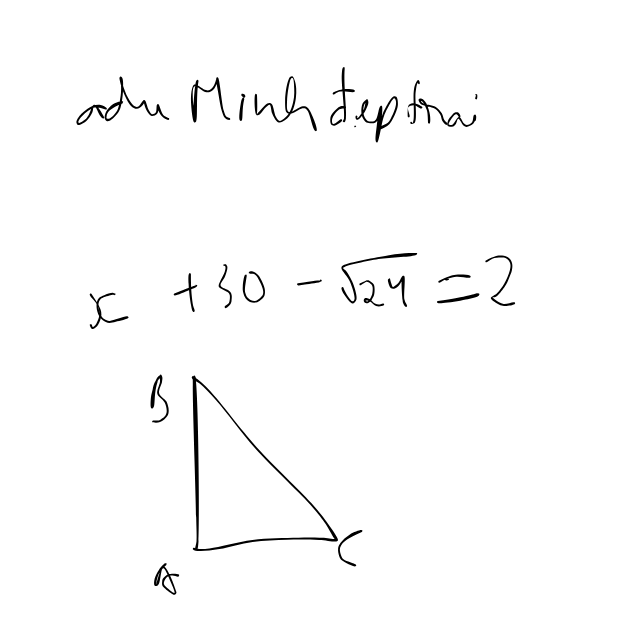 adu Minh đẹp trai
x + 30 - √24 = 2
B
A
C